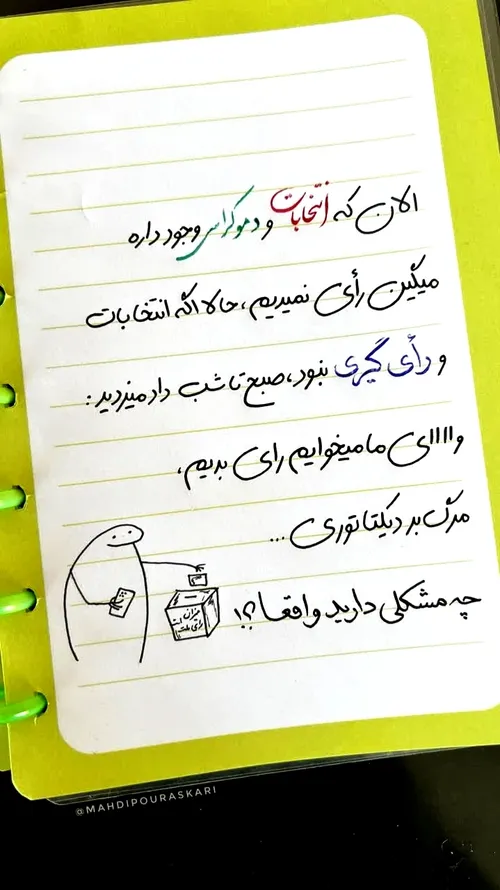 الان که انتخابات و دموکراسی وجود داره
میگین رأی نمیدیم، حالا اگه انتخابات
و رأی گیری نبود، صبح تا شب داد میزدید :
وااااای ما میخوایم رای بدیم،
مرگ بر دیکتاتوری ...
چه مشکلی دارید واقعا ؟!
میزان
رأی ملت
@MAHDIPOURASKARI